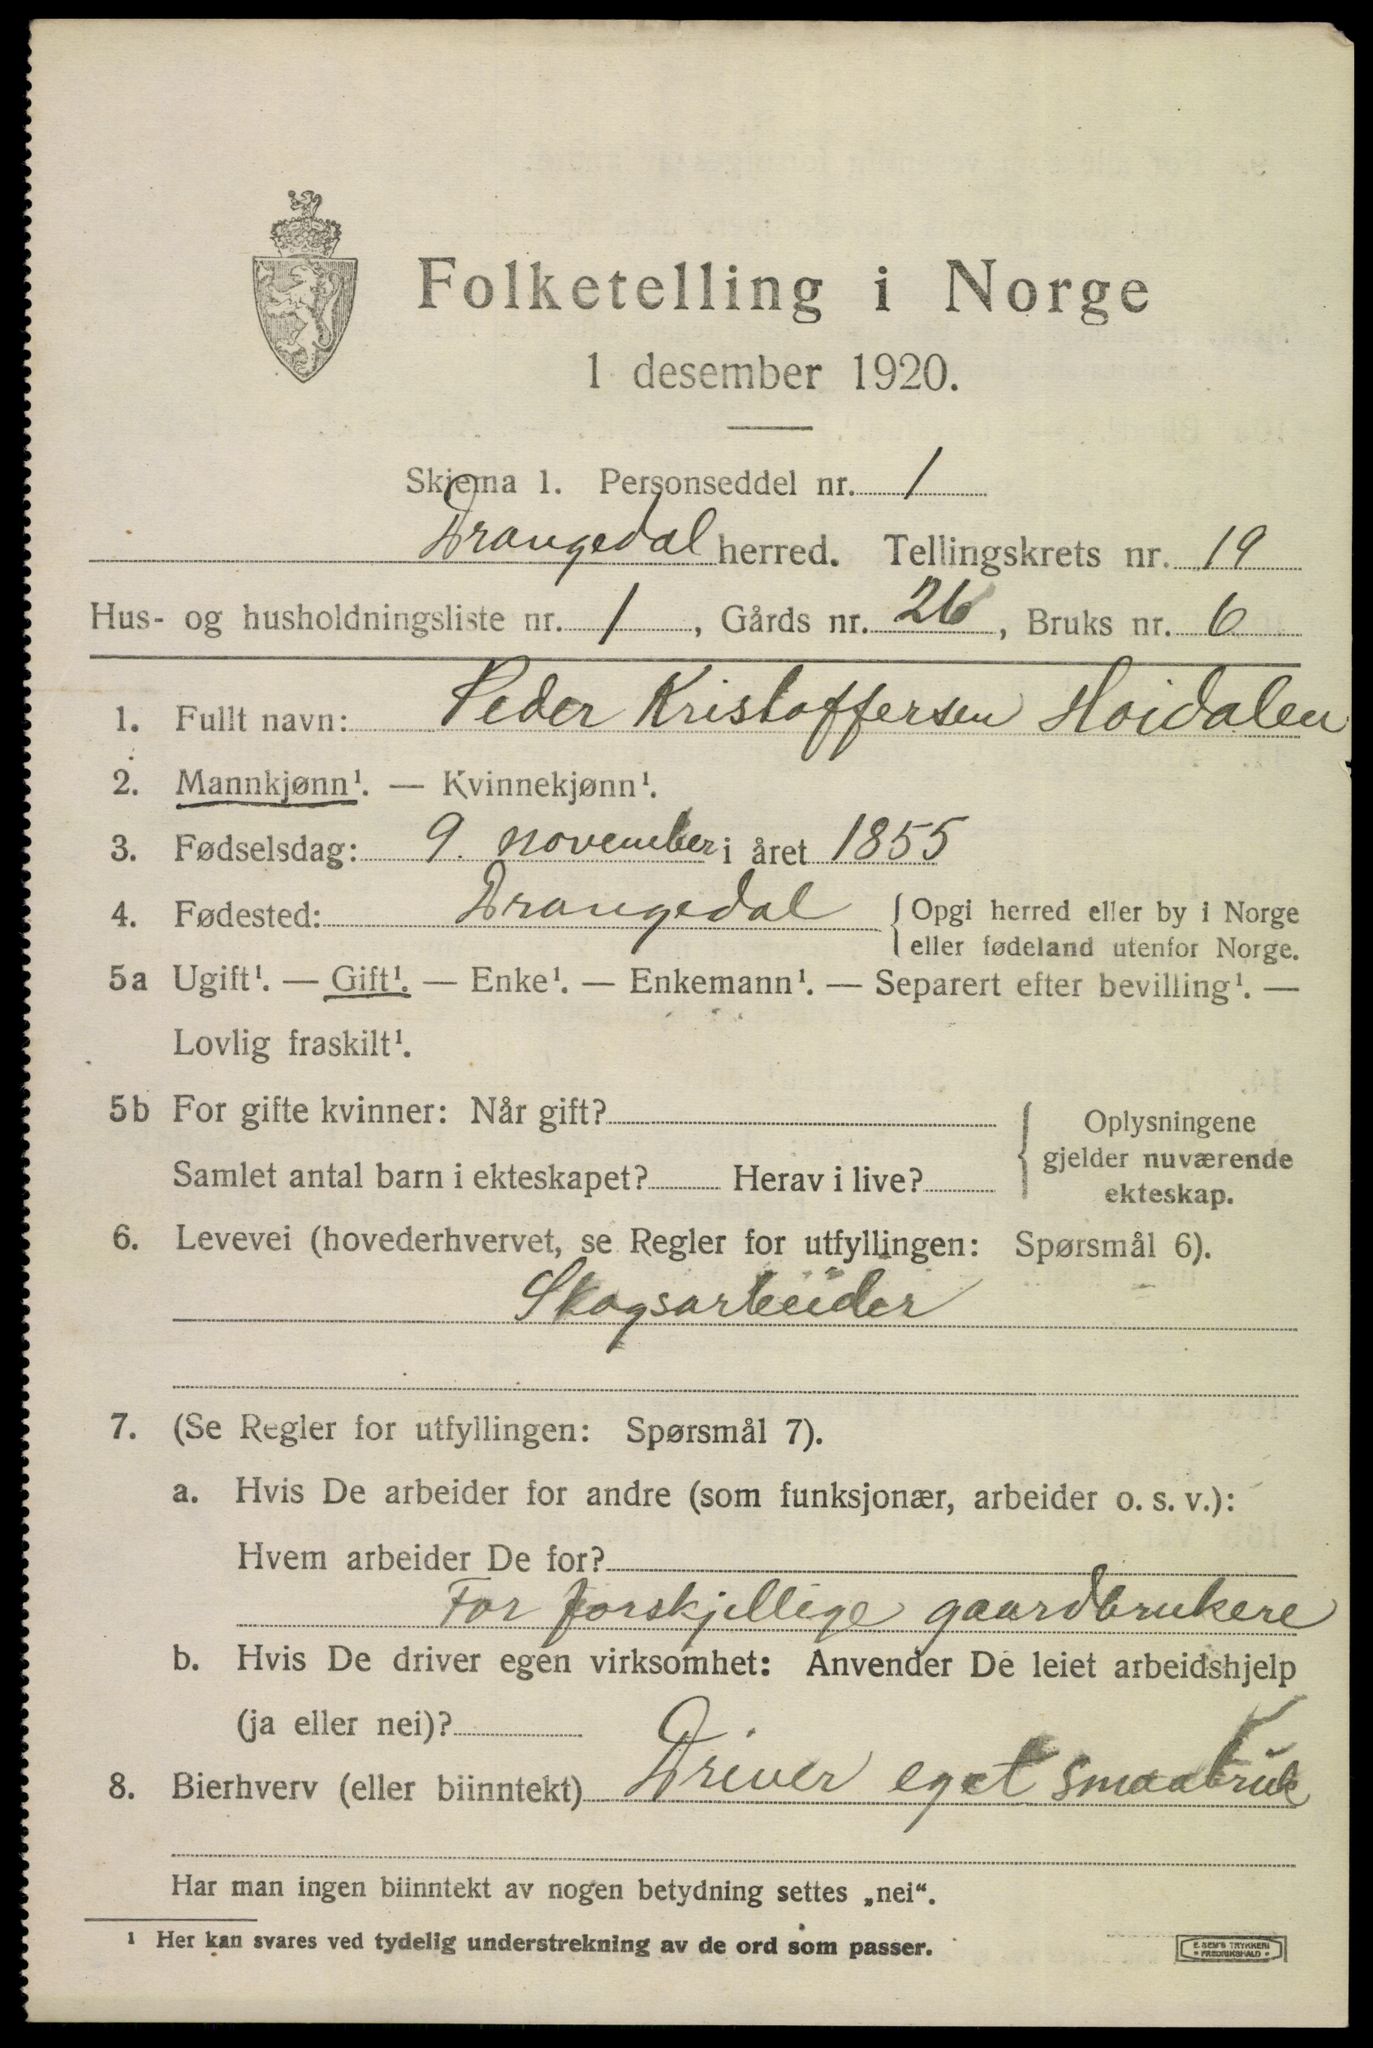 Folketelling i Norge
1 desember 1920.
Skjema 1. Personseddel nr. 1
Drangedal herred. Tellingskrets nr. 19
Hus- og husholdningsliste nr. 1, Gårds nr. 26, Bruks nr. 6
1. Fullt navn: Peder Kristoffersen Hoidalen
2. Mannkjønn¹. — Kvinnekjønn¹.
3. Fødselsdag: 9. november i året 1855
4. Fødested: Drangedal { Opgi herred eller by i Norge
eller fødeland utenfor Norge.
5a Ugift¹. — Gift¹. — Enke¹. — Enkemann¹. — Separert efter bevilling¹. —
Lovlig fraskilt¹.
5b For gifte kvinner: Når gift?
Samlet antal barn i ekteskapet? Herav i live?
{ Oplysningene
gjelder nuværende
ekteskap.
6. Levevei (hovederhvervet, se Regler for utfyllingen: Spørsmål 6).
Skogsarbeider
7. (Se Regler for utfyllingen: Spørsmål 7).
a. Hvis De arbeider for andre (som funksjonær, arbeider o. s. v.):
Hvem arbeider De for?
For forskjellige gaardbrukere
b. Hvis De driver egen virksomhet: Anvender De leiet arbeidshjelp
(ja eller nei)?
8. Bierhverv (eller biinntekt) Driver eget smaabruk
Har man ingen biinntekt av nogen betydning settes „nei“.
¹ Her kan svares ved tydelig understrekning av de ord som passer.
E. SEM'S TRYKKERI
• FREDRIKSHALD •